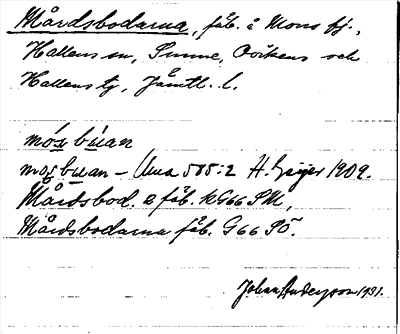 Mårdsbodarna, fäb. å Mons fj.,
Hallens sn, Sunne, Ovikens och
Hallens tg, Jämtl. l.
móṣ bùan
moṣbuan – Una 585:2 H. Geijer 1909.
Mårdsbod. 2 fäb. KG66 SM,
Mårdsbodarna fäb. G66 SÖ.
Johan Andersson 1931.